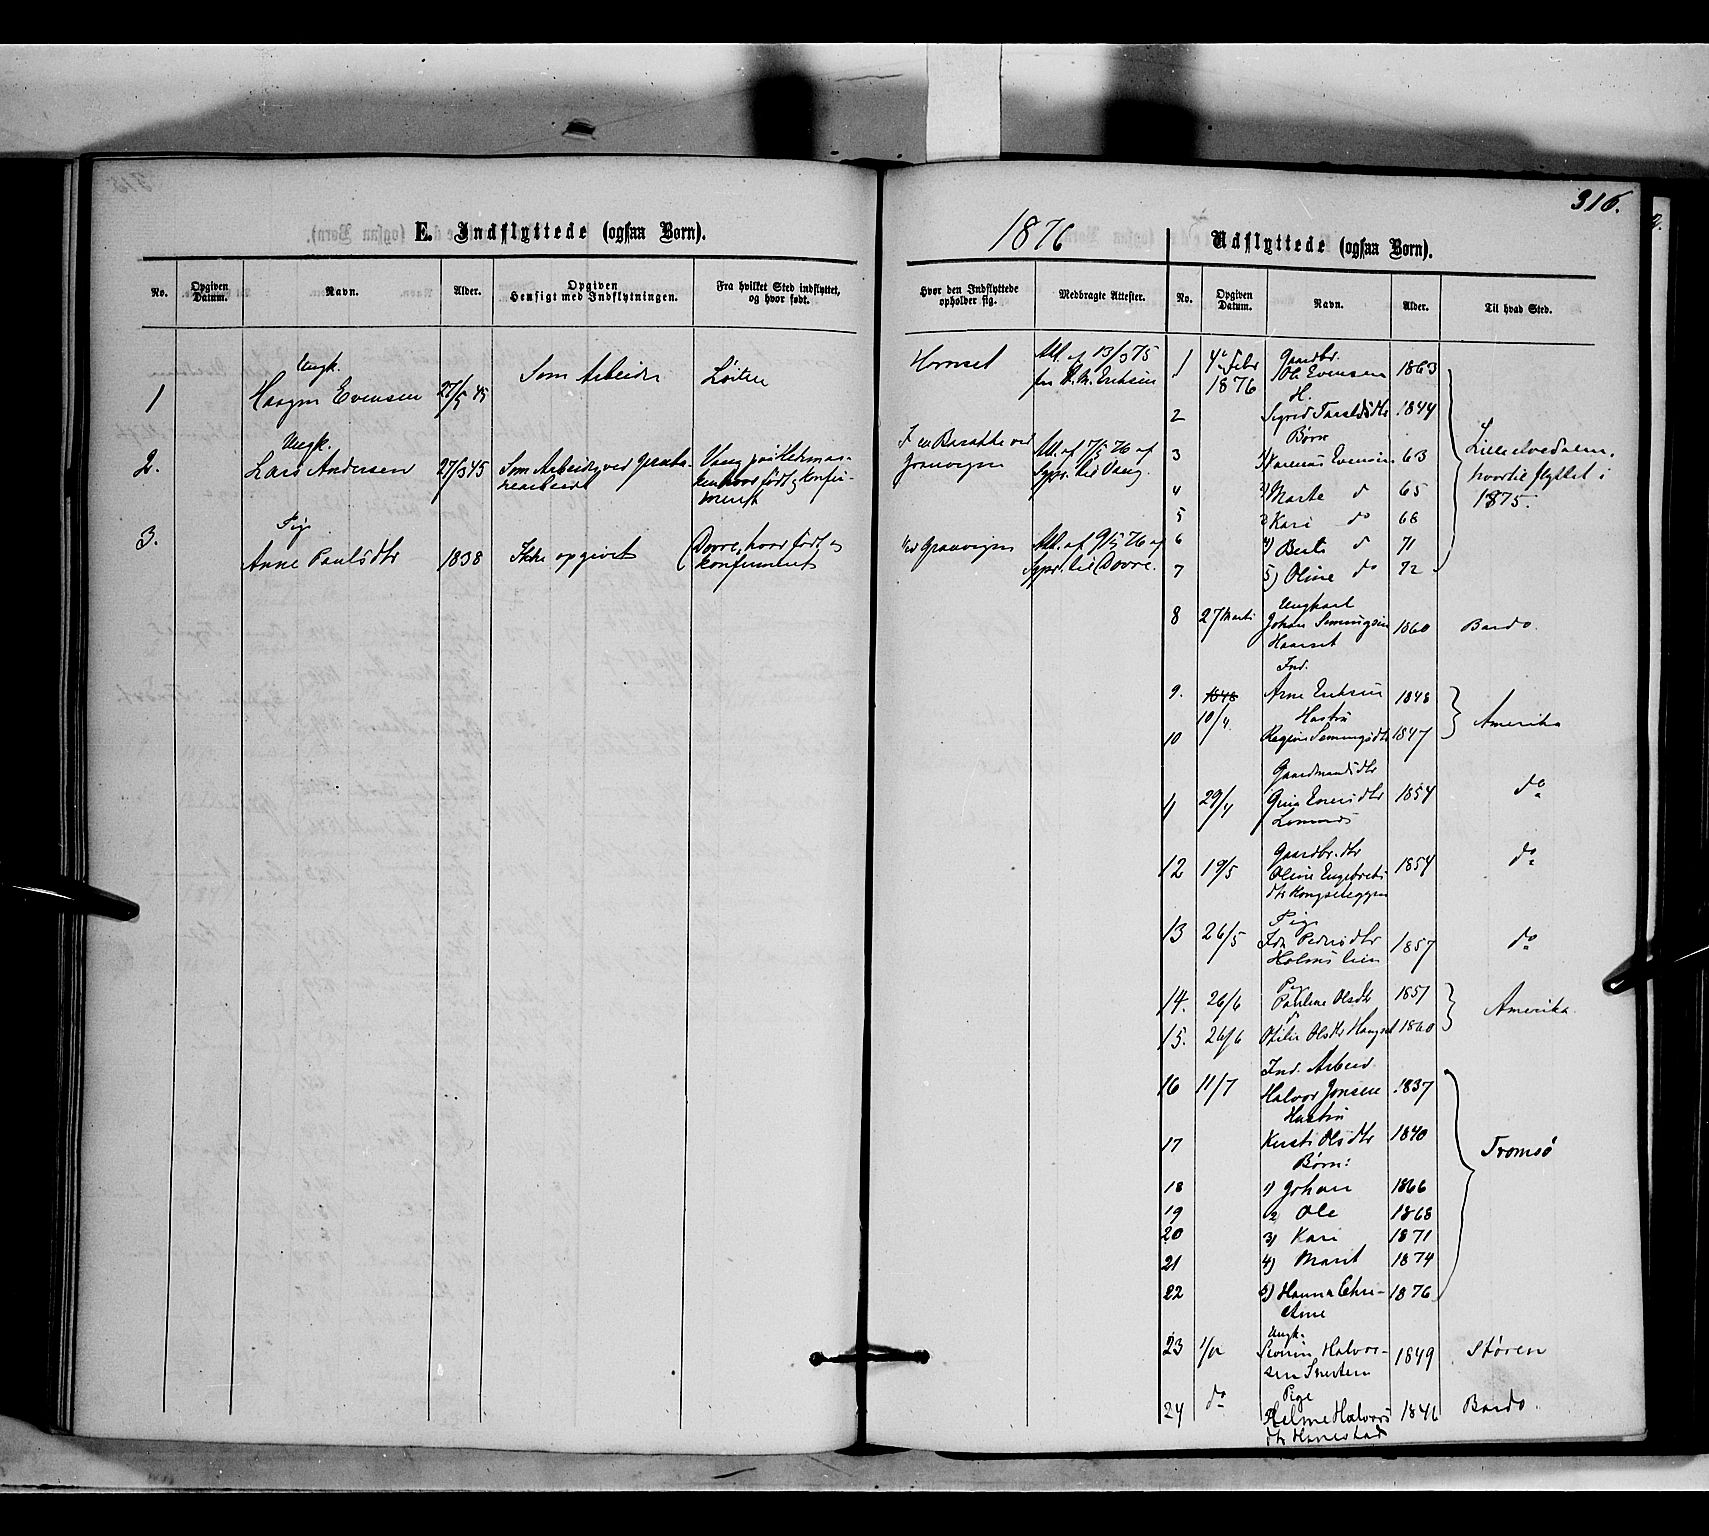 316.
E. Indflyttede (ogsaa Børn).
1876
Udflyttede (ogsaa Børn).
No. Opgiven Datum. Navn. Alder. Opgiven Hensigt med Indflytningen. Fra hvilket Sted indflyttet, og hvor født.
Hvor den Indflyttede opholder sig. Medbragte Attester. No. Opgiven Datum. Navn. Alder. Til hvad Sted.
Ungk.
1 Haagen Evensen 27/5 45 Som Arbeider Løiten
Hornset Att. af 13/3 75
fra Eriksen
Ungk.
2. Lars Andersen 27/3 45 Som Arbeider ved
Vang paa Hedemar-
ken hvor født og Konfir-
meret
I en Barakke ved
Att. af 7/5 76 af
Sgpr. til Vang.
Pige
3. Anne Paulsdtr 1838 Ikke opgivet Dovre, hvor født og
konfirmeret
Ved Att. af 9/5 76 af
Sgpr. til Dovre.
Gaardbr.
1 4de Febr Ole Evensen 1863
1876 H.
2 Sigrid 1844
Børn
3 1) Evensen 63
4 2) Marte do 65
5 3) Kari do 68
6 4) Berte do 71
7 5) Oline do 72
Lilleelvedalen,
hvortil flyttet i
1875.
Ungkarl
8 27 Marts Johan Semmingsen 1860 Bardo.
Ind.
9. 1848 Arne Eriksen 1848
10/4 Hustru
10 Semmingsdtr 1847
Amerika
Gaardmandsdtr
11 29/4 1854 do
Gaardbr. dtr
12 19/5 Oline Engebrets- 1854 do
dtr
Pige
13 26/5 Pedersdtr 1857 do
Pige
14. 26/6 Pauline Olsdtr 1857
15. 26/6 Otilie Olsdtr 1860
Amerika.
Ind. Arbeid.
16 11/7 Halvor Jonsen 1837
Hustru
17 Kersti Olsdtr 1840
Børn:
18 1) Johan 1866
19 2) Ole 1868
20 3) Kari 1871
21 4) Marit 1874
22 5) Hanna Chri- 1876
stine
Tromsø
Ungk.
23 Halvor- 1849 Støren
sen
Pige
24 do Helme Halvors 1846 Bardo.
dtr Hanestad